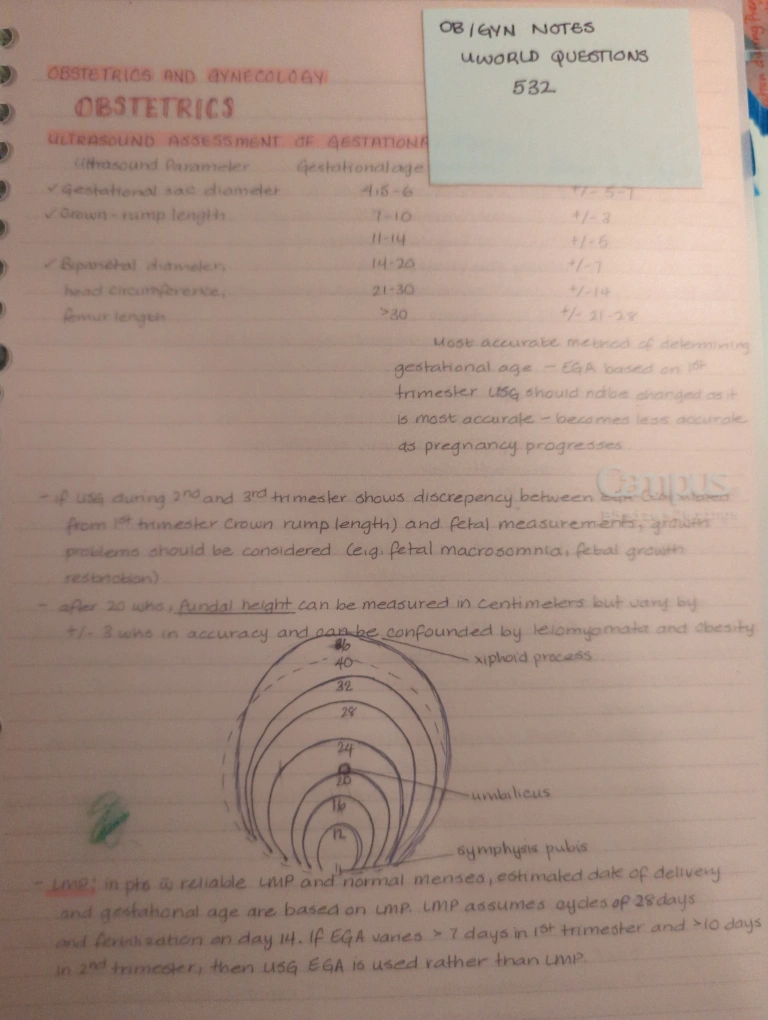 OB/GYN NOTES
UWORLD QUESTIONS
532
OBSTETRICS AND GYNECOLOGY
OBSTETRICS
ULTRASOUND ASSESSMENT OF GESTATIONA
Ultrasound Parameter Gestational age
✓ Gestational sac diameter 4.5-6 +/- 5-7
✓ Crown-rump length 7-10 +/- 3
11-14 +/- 5
✓ Biparietal diameter, 14-20 +/- 7
head circumference, 21-30 +/- 14
femur length >30 +/- 21-28
Most accurate method of determining
gestational age - EGA based on 1st
trimester USG should not be changed as it
is most accurate - becomes less accurate
as pregnancy progresses
Campus
- if USG during 2nd and 3rd trimester shows discrepancy between
from 1st trimester crown rump length) and fetal measurements, growth
problems should be considered (e.g. fetal macrosomnia, fetal growth
restriction)
- after 20 wks, fundal height can be measured in centimeters but vary by
+/- 3 wks in accuracy and can be confounded by leiomyomata and obesity
36
xiphoid process
40
32
28
24
20
umbilicus
16
12
symphysis pubis
- LMP: in pts reliable LMP and normal menses, estimated date of delivery
and gestational age are based on LMP. LMP assumes cycles of 28 days
and fertilization on day 14. If EGA varies > 7 days in 1st trimester and >10 days
in 2nd trimester, then USG EGA is used rather than LMP.